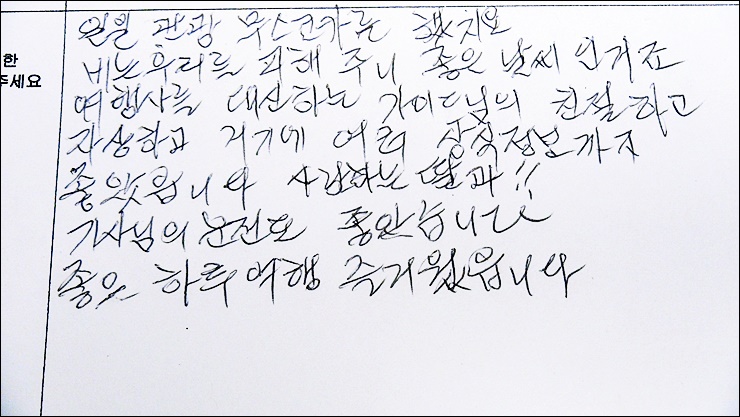 한
주세요
일일 관광 무스코카를 했지요
비는 우리를 피해 주니 좋은 날씨 인거죠
여행사를 대신하는 가이드님의 친절하고
자상하고 거기에 여러 상식정보까지
좋았읍니다 사랑하는 딸과!!
기사님의 운전도 좋았습니다
좋은 하루 여행 즐거웠읍니다